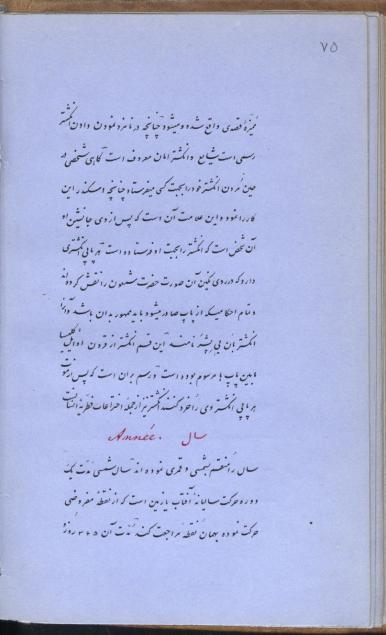 ۷۵
ممیزهٔ قصدی واقع شده و میشود چنانچه در نامزد نمودن دادن انگشتر
رسمی است شایع و انگشتر امان معروف است گاهی شخصی در
حین مُردن انگشتر خود را بجهت کسی میفرستاد چنانچه اسکندر این
کار را نمود و این علامت آن است که پس از وی جانشین او
آن شخص است که انگشتر را بجهت او فرستاده است هر پاپی انگشتری
دارد که در روی نگین آن صورت حضرت شمعون را نقش کرده‌اند
و تمام احکامیکه از پاپ صادر میشود باید ممهور بدان باشد و آنرا
انگشتر نامند این قسم انگشتر از قرون اوایل کلیسا
مابین پاپ ها مرسوم بوده است و رسم بر آن است که پس از فوت
هر پاپی انگشتر وی را خرد کنند انگشتر نیز از جمله اختراعات فطریهٔ انسان است
سال Année.
سال را منقسم بشمسی و قمری نموده اند سال شمسی مدّت یک
دوره حرکت سالیانه آفتاب یا زمین است که از نقطهٔ مفروضی
حرکت نموده بهمان نقطه مراجعت کند مدّت آن ۳۶۵ روز و